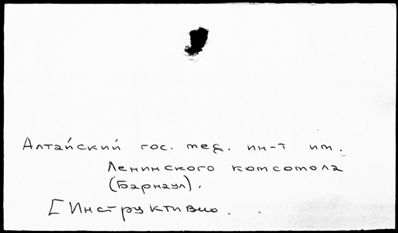 Алтайский гос. мед. ин-т им.
Ленинского комсомола
(Барнаул).
[Инструктивно.